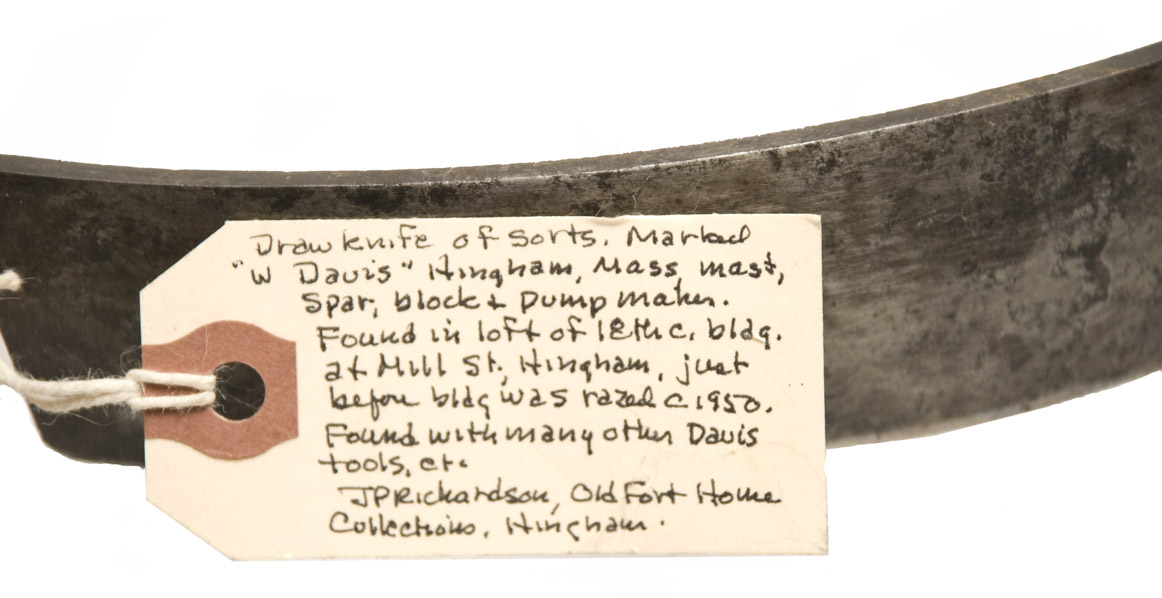 Drawknife of sorts. Marked
"W Davis" Hingham, Mass mast,
Spar, block & Pump maker.
Found in loft of 18th c. bldg.
at Mill St., Hingham, just
before bldg was razed c 1950.
Found with many other Davis
tools, etc.
JPRichardson, Old Fort Home
Collections, Hingham.